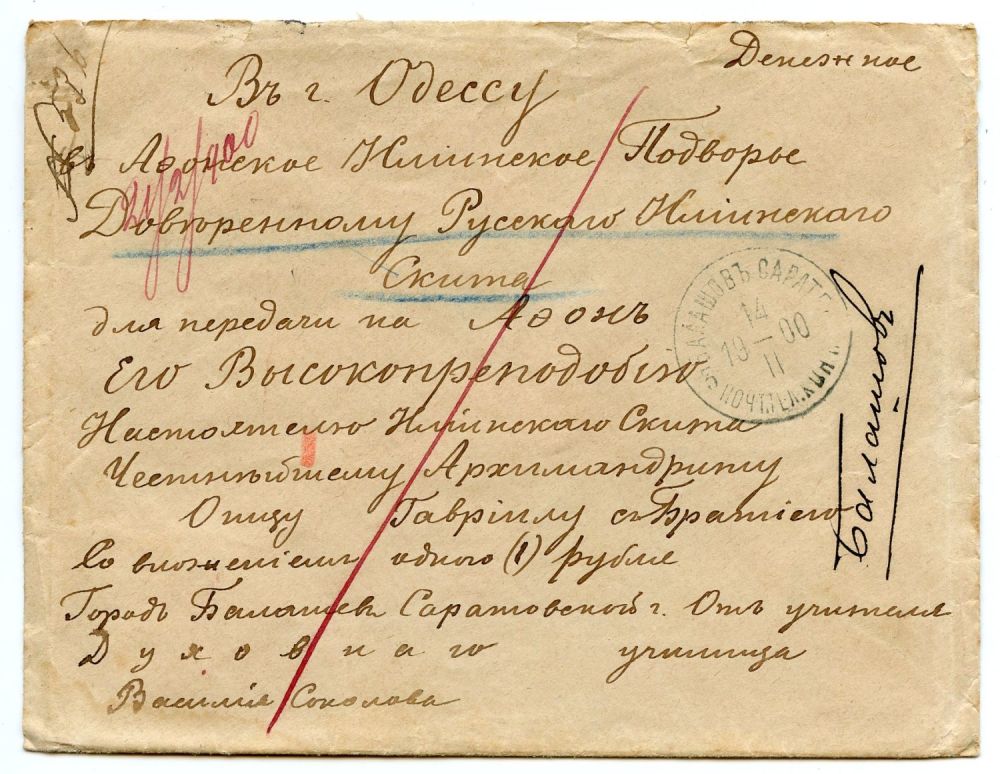 Денежное
Въ г. Одессу
въ Аѳонское Ильинское Подворье
21/2/900
Довѣренному Русскаго Ильинскаго
Скита
для передачи на Аѳонъ
Его Высокопреподобію
Настоятелю Ильинскаго Скита
Честнѣйшему Архимандриту
Отцу Гавріилу съ Братіею
Со вложеніемъ одного (1) рубля
Городъ Балашевъ Саратовской г. Отъ учителя
Духовнаго училища
Василія Соколова
БАЛАШОВЪ САРАТ.
14
19—00
II
ПОЧТ.ТЕЛ.КОН.
Балашовъ